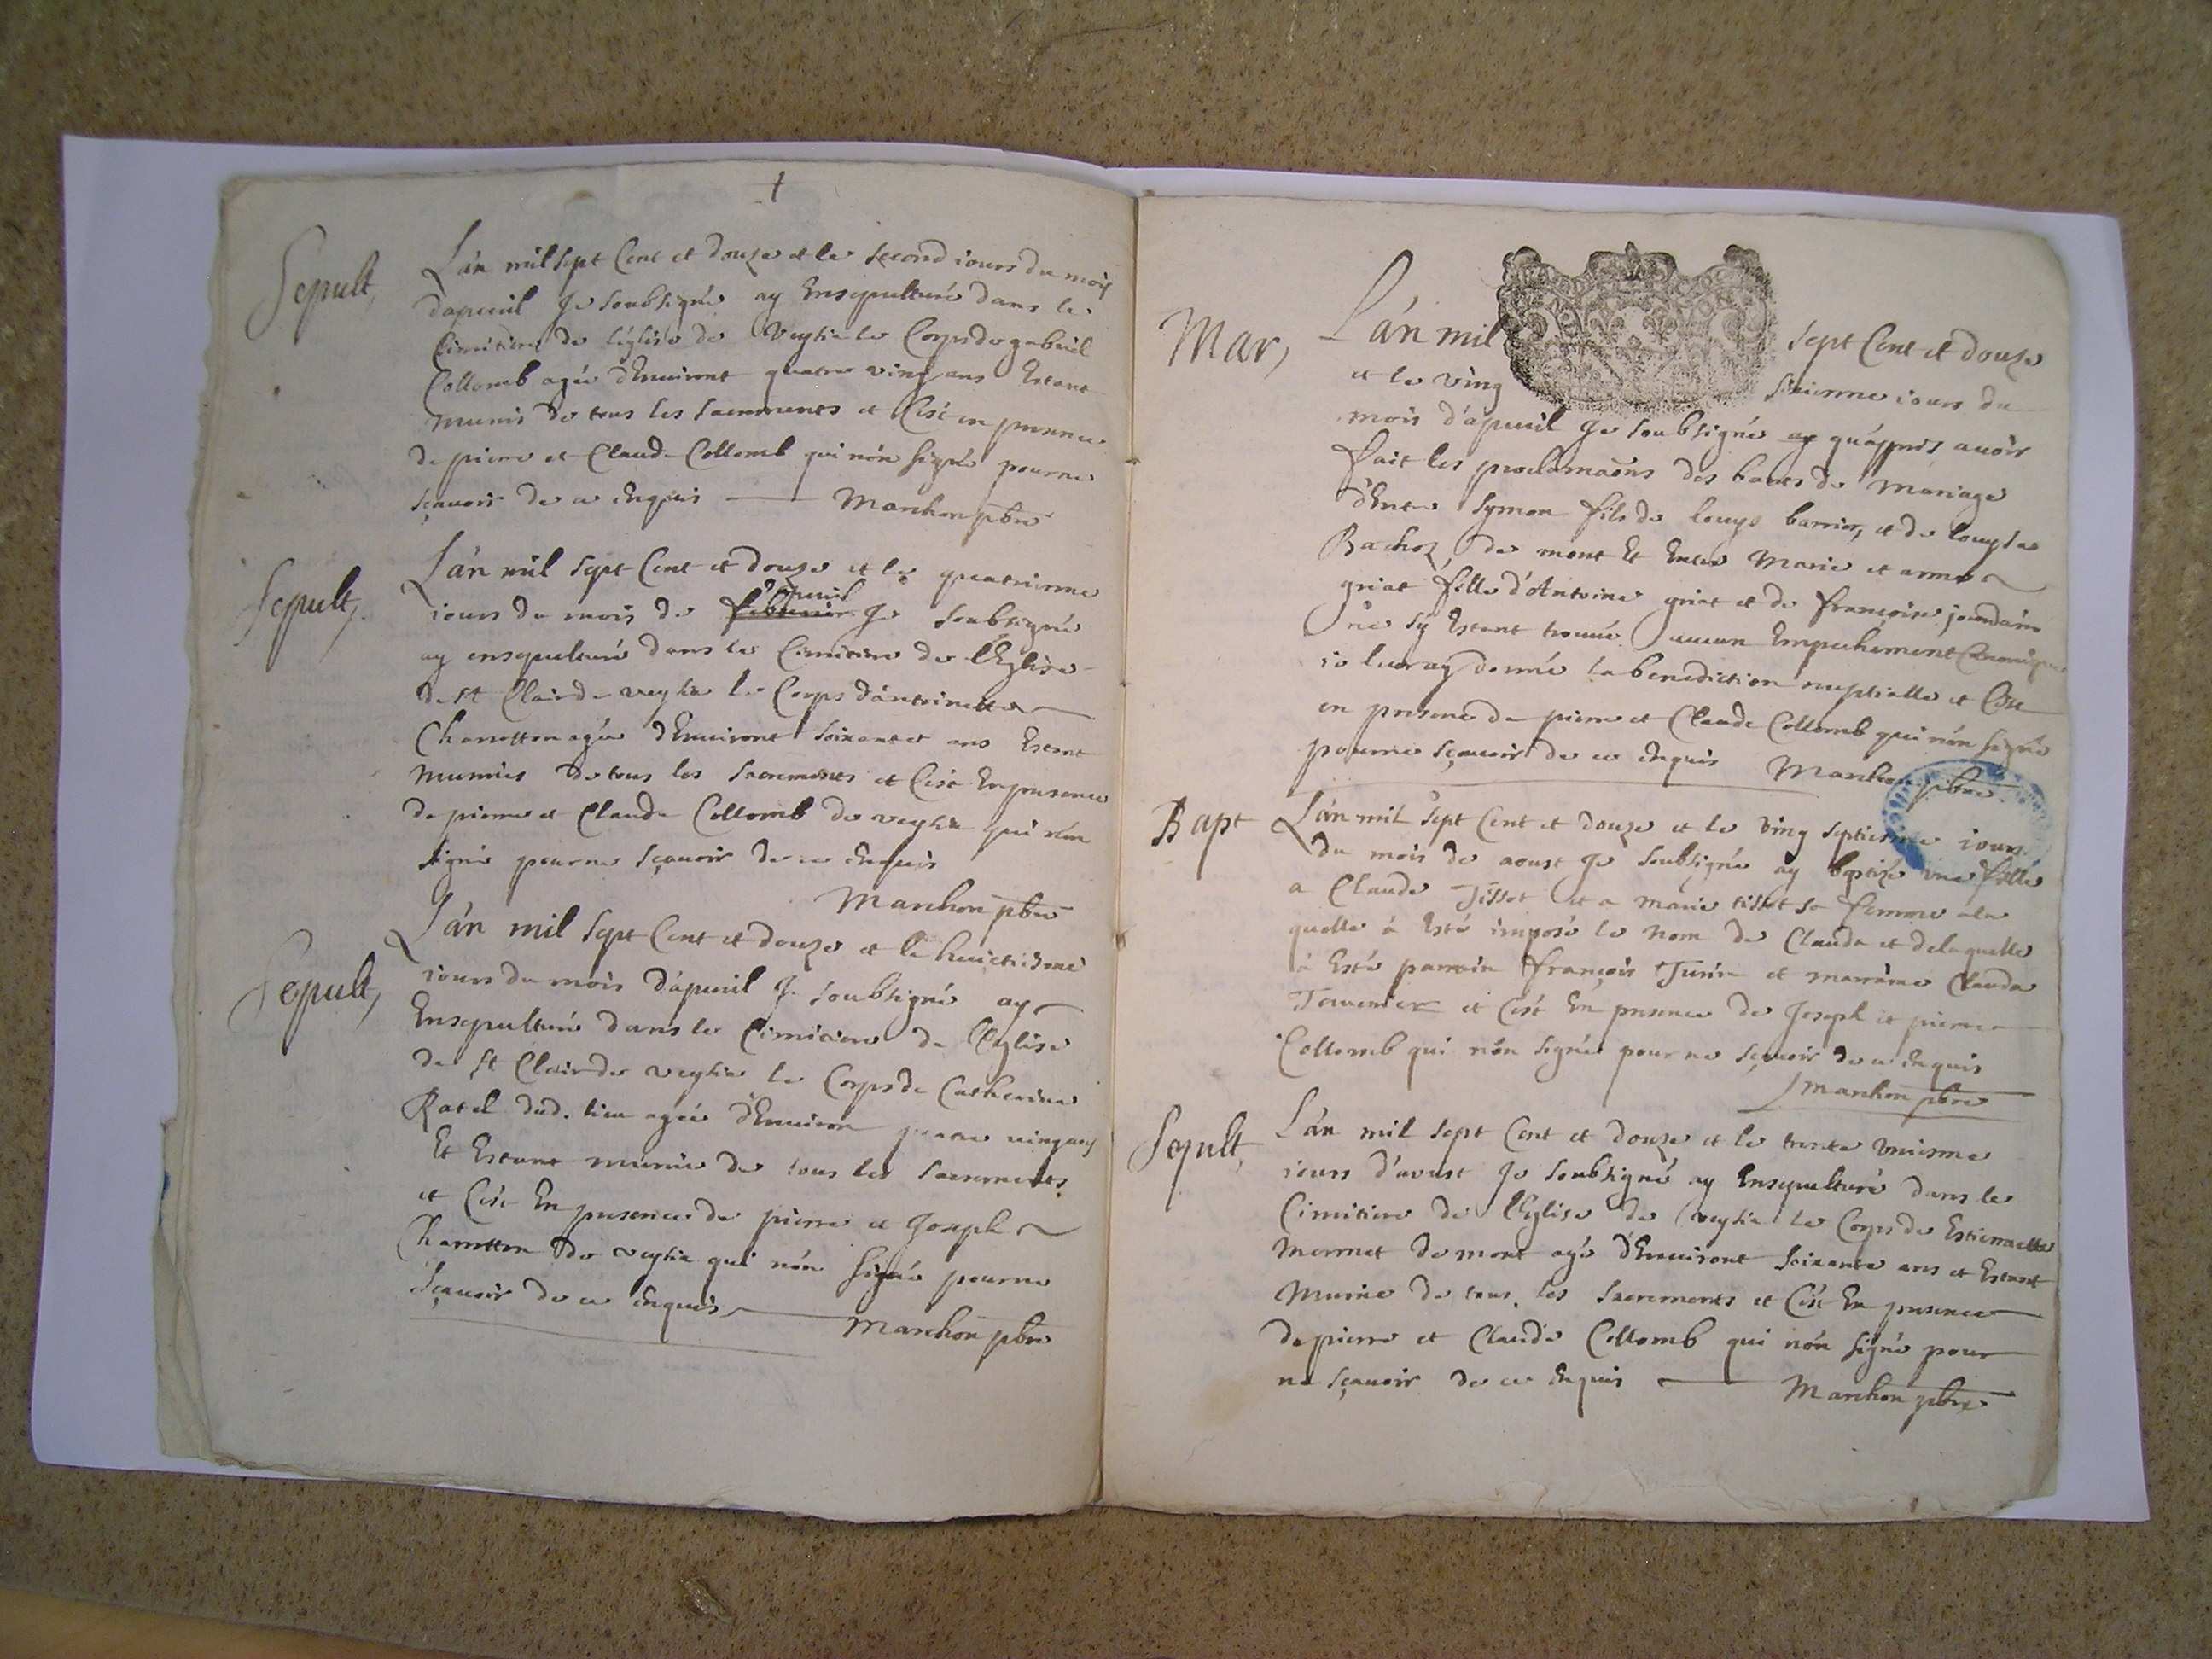 †
Sepult,
L'án mil sept Cent et douze et le second iours du mois
dapuril Je soubsigné ay Ensepulturé dans le
Cimitiere de l'église de Veytia le Corps de gabriel
Collomb agée d'Enuiront quatre ving ans Estant
munis de tous les sacrements et C'ést en presence
de pierre et Claude Collomb qui nón signé pourne
sçauoir de ce Enquis Marchon pbre
Sepult,
L'án mil sept Cent et douze et le quatrieme
apuril
iours du mois de feburier Je soubsigné
ay ensepulturé dans le Cimitiere de l'Eglise
de st Clair de veytia le Corps d'ántoinette
Charotton agée d'Enuiront soixantet ans Estant
munies de tous les sacrements et C'ést En presence
de pierre et Claude Collomb de veytia qui nón
signé pourne sçauoir de ce Enquis
Marchon pbre
Sepult,
L'án mil sept Cent et douze et le huictiesme
iours du mois d'apuril Je soubsigné ay
Ensepulturé dans le Cimitiere de l'Eglise
de st Clair de veytia le Corps de Catherine
Ratel dud. lieu agée d'Enuiron quatre uing ans
Et Estant munie de tous les sacrements
et C'ést En presence de pierre et Joseph
Charotton de veytia qui nón signé pourne
sçauoir de ce Enquis Marchon pbre
Mar,
L'án mil sept Cent et douze
et le ving sixieme iours du
mois d'apuril Je soubsigné ay qu'áppres auoir
fait les proclamaōns des bancs de Mariage
d'Entre Symon fils de louys barrier, et de louyse
Bachoz de mont Et Entre Marie et anne
griat fille d'Antoine griat et de françoise jourdain
ne sy Estant trouué aucun Empechement Canonique
ie leur ay donné la benediction nuptialle et C'ést
en presence de pierre et Claude Collomb qui nón signé
pourne sçauoir de ce Enquis Marchon pbre
Bapt
L'án mil sept Cent et douze et le ving septiesme iours
du mois de aoust Je soubsigné ay baptizé vne fille
a Claude Tissot et a marie tissot sa femme a la
quelle à Esté imposé le nom de Claude et de laquelle
à Esté parrain françois Turin et marraine Clauda
Tauernier et C'ést En presence de Joseph et pierre
Collomb qui nón signé pour ne sçauoir de ce Enquis
Marchon pbre
Sepult,
L'án mil sept Cent et douze et le trente vniesme
iours d'aoust Je soubsigné ay Ensepulturé dans le
Cimitiere de l'Eglise de veytia le Corps de Estiennette
Mermet de mont agé d'Enuiront soixante ans et Estant
Munie de tous les sacrements et C'ést En presence
de pierre et Claude Collomb qui nón signé pour
ne sçauoir de ce Enquis Marchon pbre